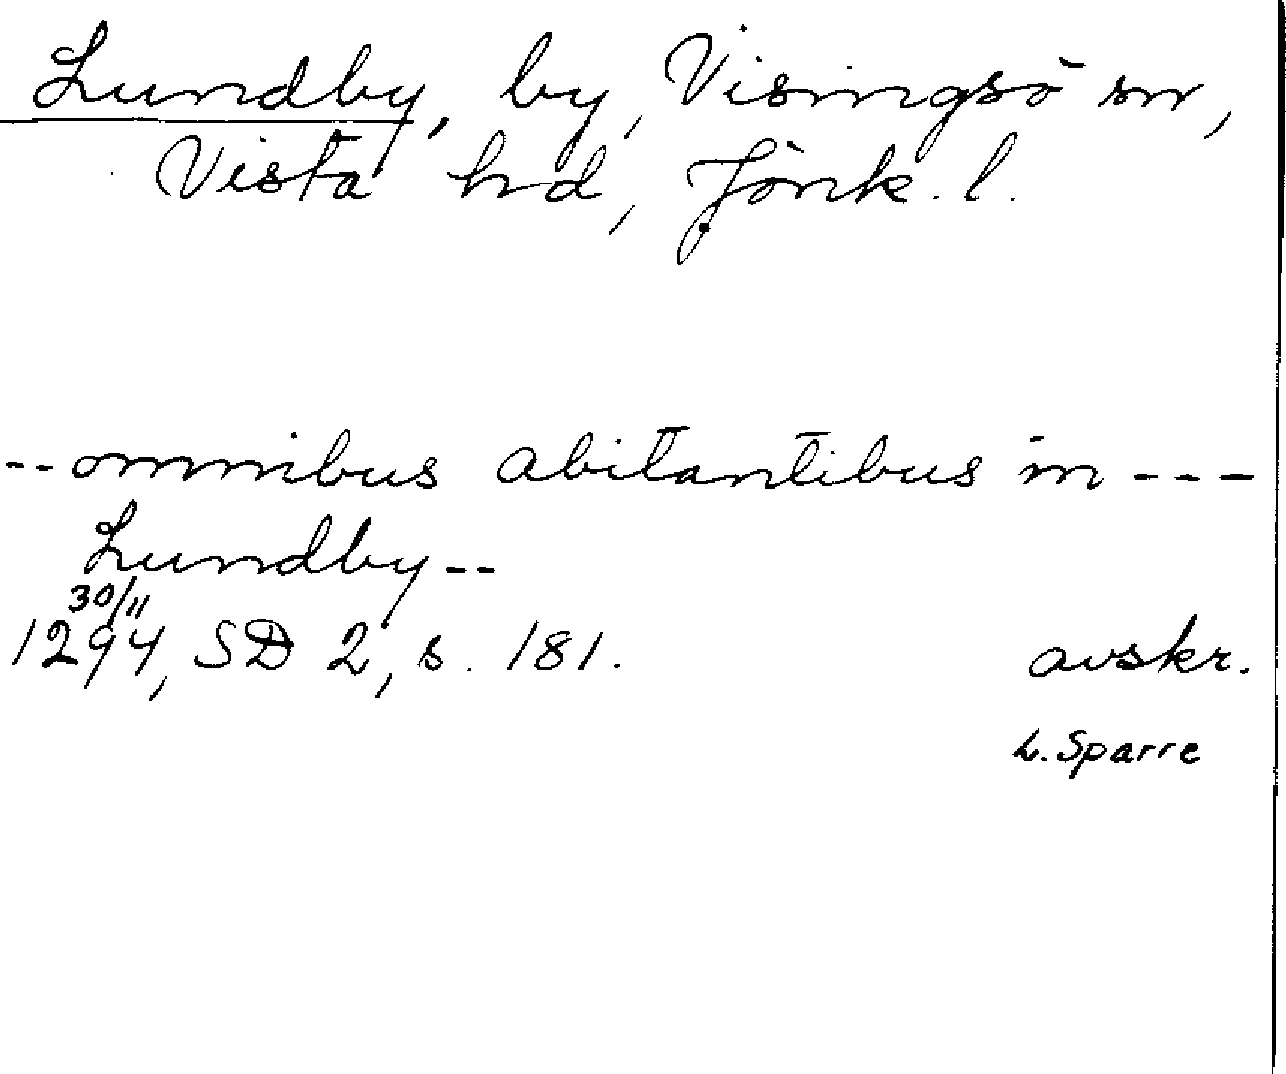 Lundby, by, Visingsö sn,
Vista hd, Jönk. l.
-- omnibus abitantibus in ---
Lundby --
30/11
1294, SD 2, s. 181. avskr.
L. Sparre